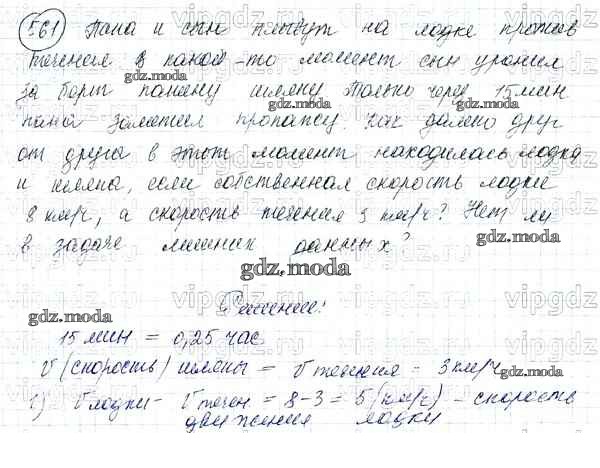 561 Папа и сын плывут на лодке против
течения. В какой-то момент сын уронил
за борт папину шляпу. Только через 15 мин
папа заметил пропажу. Как далеко друг
от друга в этот момент находилась лодка
и шляпа, если собственная скорость лодки
8 км/ч, а скорость течения 3 км/ч? Нет ли
в задаче лишних данных?
gdz.moda
Решение:
15 мин = 0,25 час
V (скорость) шляпы = V течения - 3 км/ч
1) V лодки - V течен = 8 - 3 = 5 (км/ч) - скорость
движения лодки